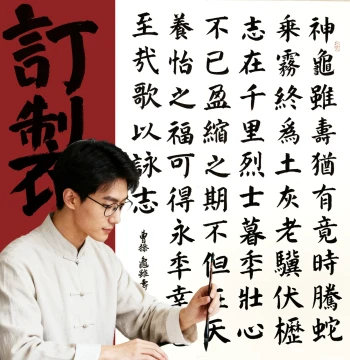 訂製
神龜雖壽猶有竟時騰蛇
乘霧終爲土灰老驥伏櫪
志在千里烈士暮秊壯心
不已盈縮之期不但在天
養怡之福可得永秊幸
至哉歌以詠志
曹操 龜雖壽